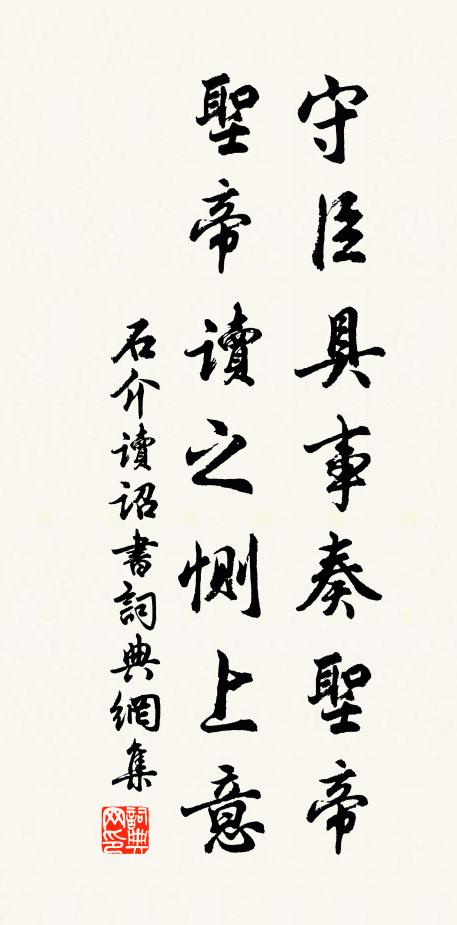 守臣具事奏聖帝
聖帝讀之惻上意
石介讀詔書詞典網集
詞典网印